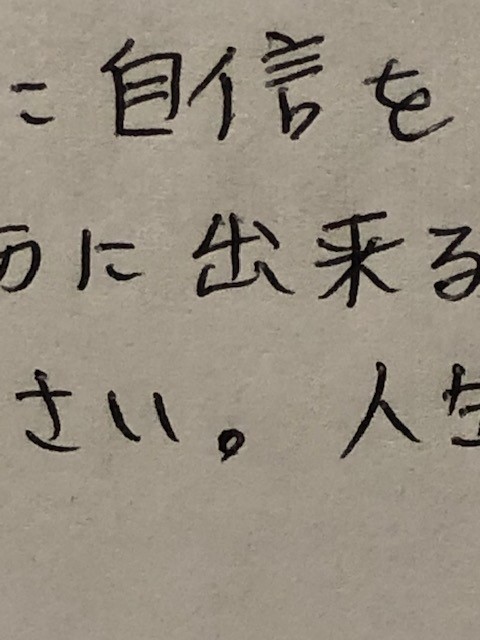 に自信を
に出来る
さい。人生